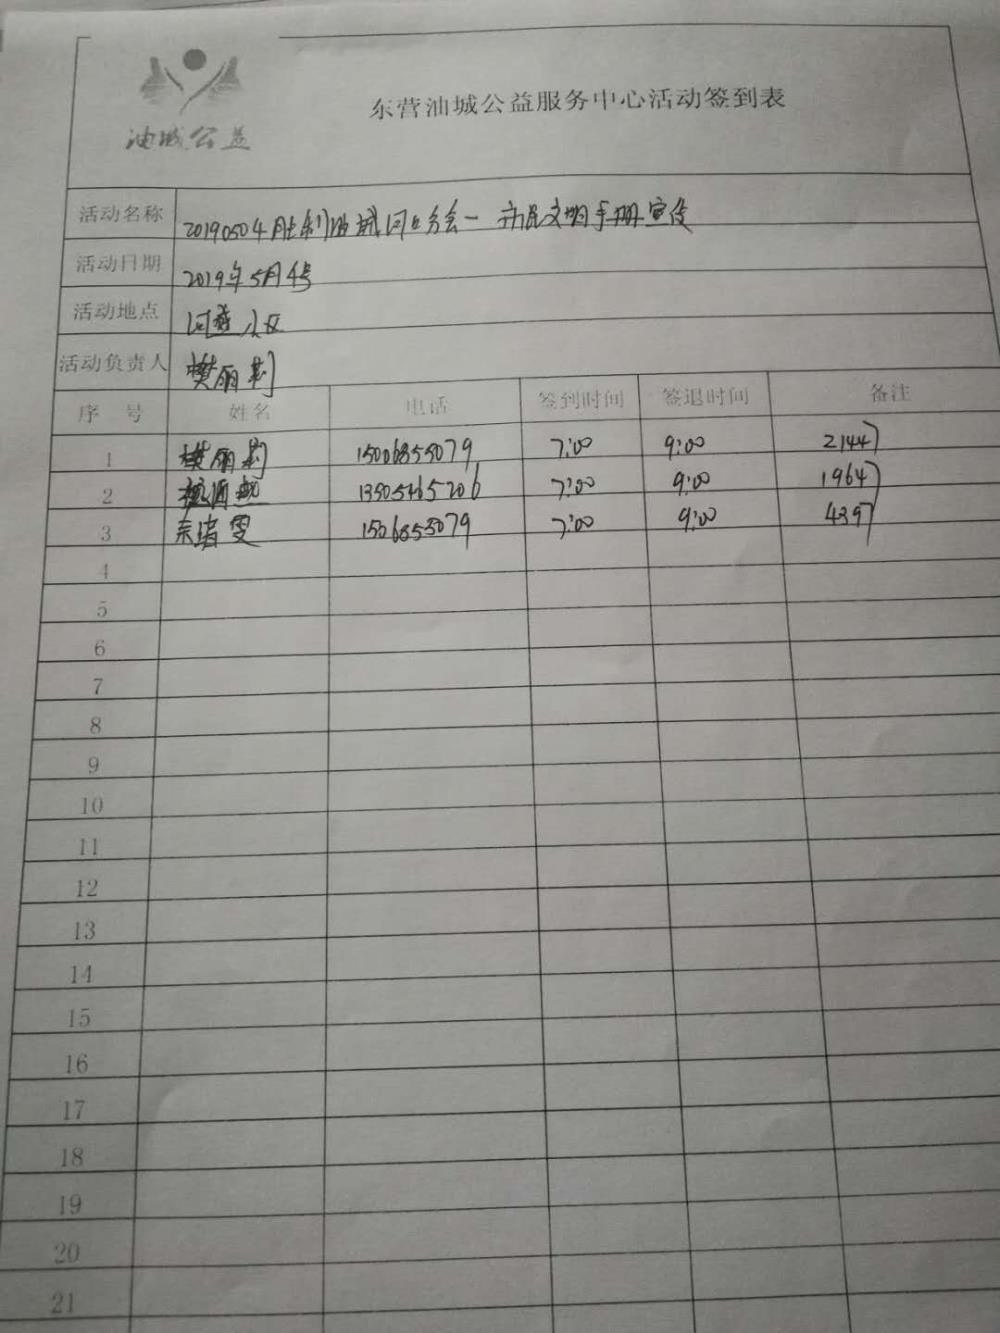 油城公益
东营油城公益服务中心活动签到表
活动名称 20190504胜利油城河口分会一市民文明手册宣传
活动日期 2019年5月4号
活动地点 河 小区
活动负责人 樊丽莉
序号 姓名 电话 签到时间 签退时间 备注
1 樊丽莉 15006855079 7:00 9:00 21447
2 7:00 9:00 19647
3 雯 1506855079 7:00 9:00 4397
4
5
6
7
8
9
10
11
12
13
14
15
16
17
18
19
20
21